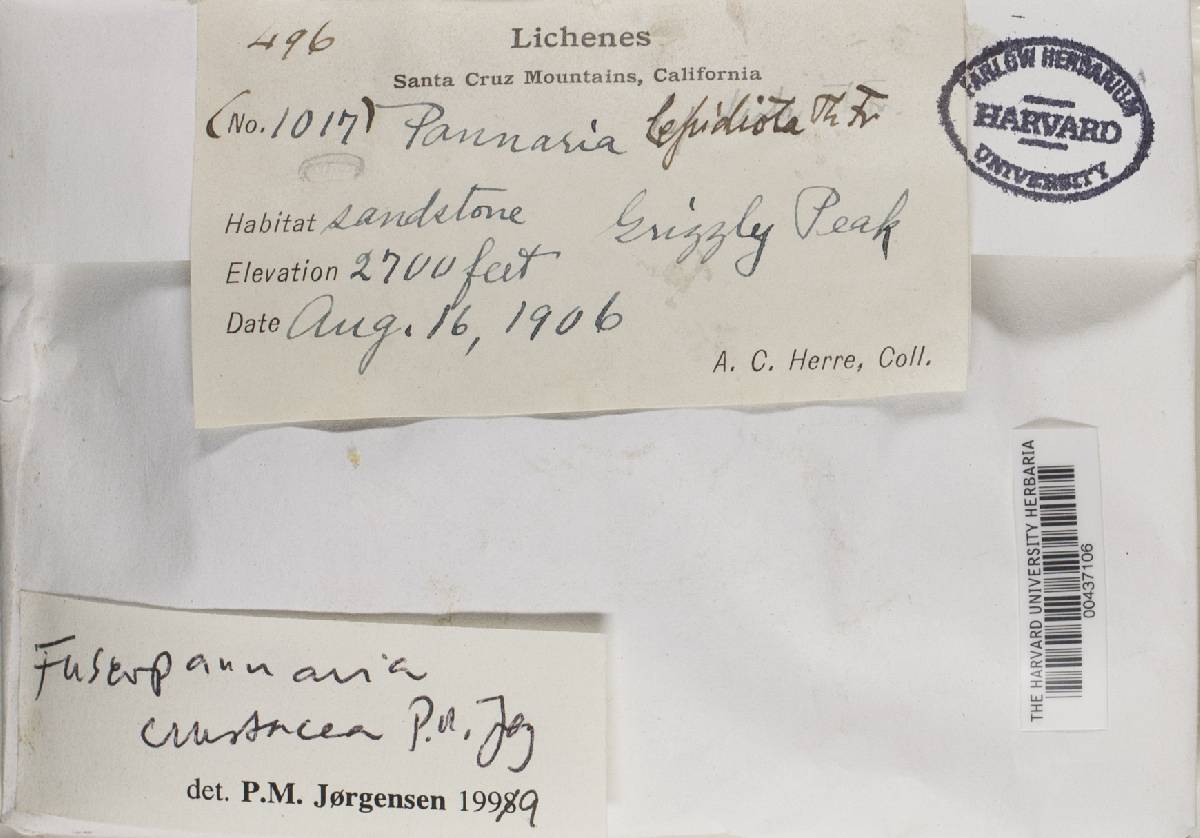 496
Lichenes
Santa Cruz Mountains, California
(No. 1017) Pannaria lepidiota Th Fr
Habitat sandstone Grizzly Peak
Elevation 2700 feet
Date Aug. 16, 1906
A. C. Herre, Coll.
FARLOW HERBARIUM
HARVARD
UNIVERSITY
THE HARVARD UNIVERSITY HERBARIA
00437106
Fuscopannaria
crustacea P.M. Jørg
det. P.M. Jørgensen 1999